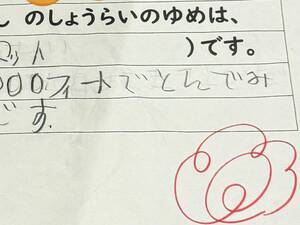 のしょうらいのゆめは、
ット )です。
000フィートでとんでみ
です。